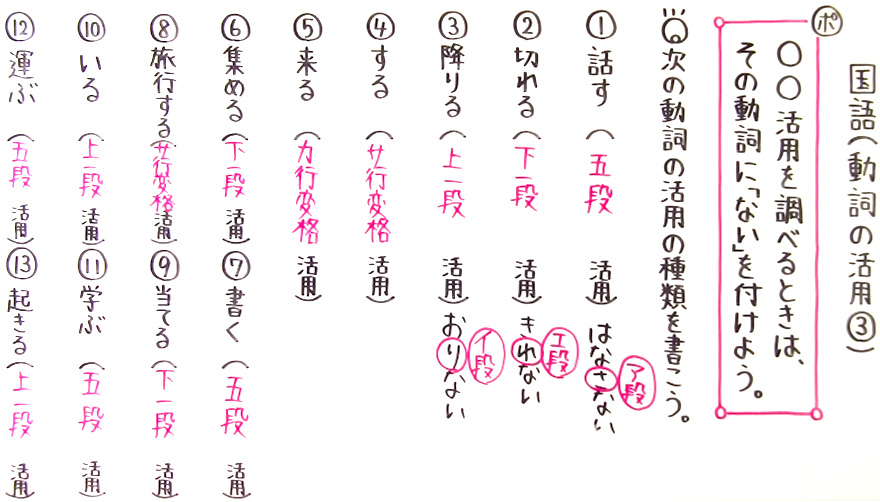 国語(動詞の活用③)
ポ
〇〇活用を調べるときは、
その動詞に「ない」を付けよう。
次の動詞の活用の種類を書こう。
①話す(五段 活用) はなさない ア段
②切れる(下一段 活用) きれない エ段
③降りる(上一段 活用) おりない イ段
④する(サ行変格 活用)
⑤来る(カ行変格 活用)
⑥集める(下一段 活用)
⑦書く(五段 活用)
⑧旅行する(サ行変格活用)
⑨当てる(下一段 活用)
⑩いる(上一段 活用)
⑪学ぶ(五段 活用)
⑫運ぶ(五段 活用)
⑬起きる(上一段 活用)